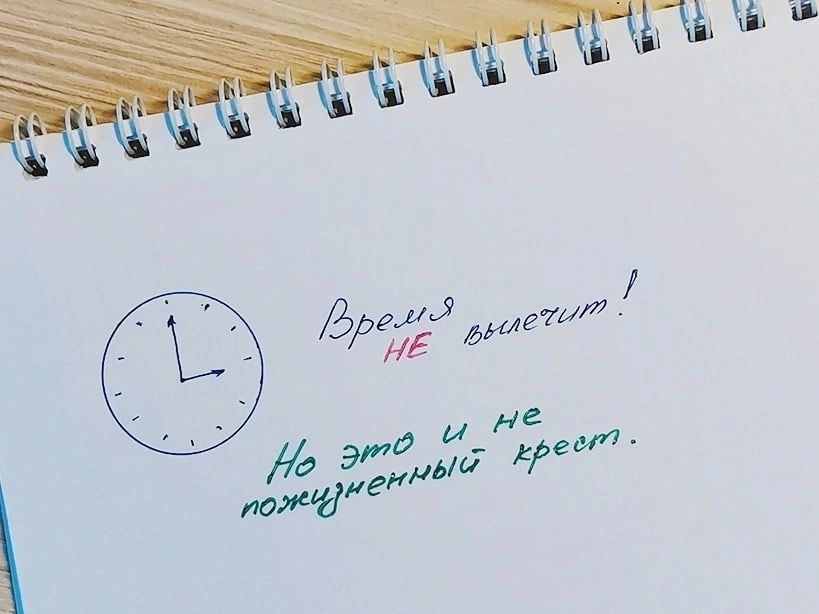 Время
НЕ вылечит!
Но это и не
пожизненный крест.